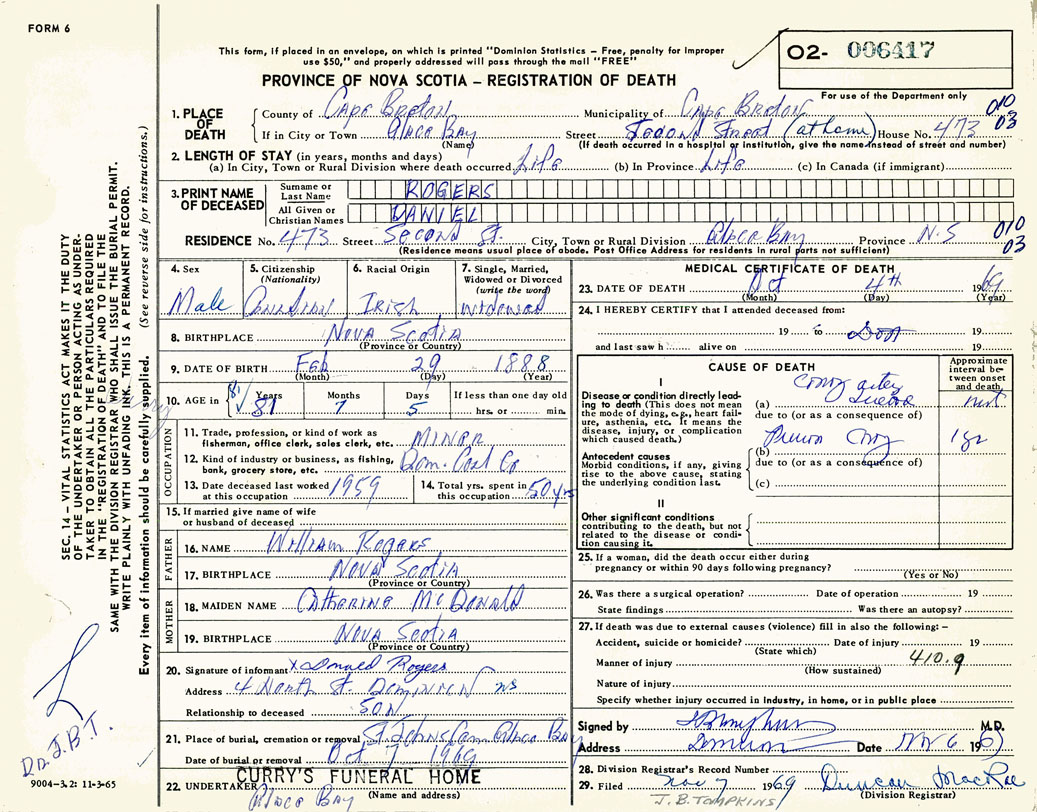 FORM 6
This form, if placed in an envelope, on which is printed "Dominion Statistics – Free, penalty for improper
use $50," and properly addressed will pass through the mail "FREE"
O2- 006417
For use of the Department only
PROVINCE OF NOVA SCOTIA – REGISTRATION OF DEATH
1. PLACE OF DEATH County of Cape Breton Municipality of Cape Breton 010
If in City or Town Glace Bay Street Second Street (at home) House No. 473 03
(Name) (If death occurred in a hospital or institution, give the name instead of street and number)
2. LENGTH OF STAY (in years, months and days)
(a) In City, Town or Rural Division where death occurred Life (b) In Province Life (c) In Canada (if immigrant)
3. PRINT NAME OF DECEASED Surname or Last Name ROGERS
All Given or Christian Names DANIEL
RESIDENCE No. 473 Street Second St. City, Town or Rural Division Glace Bay Province N.S 010 03
(Residence means usual place of abode. Post Office Address for residents in rural parts not sufficient)
4. Sex 5. Citizenship (Nationality) 6. Racial Origin 7. Single, Married, Widowed or Divorced (write the word)
Male Canadian Irish Widowed
8. BIRTHPLACE Nova Scotia
(Province or Country)
9. DATE OF BIRTH Feb 29 1888
(Month) (Day) (Year)
10. AGE in Years Months Days If less than one day old
81 81 7 5 hrs. or min.
OCCUPATION
11. Trade, profession, or kind of work as Miner
fisherman, office clerk, sales clerk, etc.
12. Kind of industry or business, as fishing, Dom. Coal Co
bank, grocery store, etc.
13. Date deceased last worked at this occupation 1959
14. Total yrs. spent in this occupation 50 yrs
15. If married give name of wife
or husband of deceased
FATHER
16. NAME William Rogers
17. BIRTHPLACE Nova Scotia
(Province or Country)
MOTHER
18. MAIDEN NAME Catherine McDonald
19. BIRTHPLACE Nova Scotia
(Province or Country)
20. Signature of informant X Donald Rogers
Address 4 North St. Dominion NS
Relationship to deceased SON
21. Place of burial, cremation or removal St Johns Cem. Glace Bay
Date of burial or removal Oct 7 1969
CURRY'S FUNERAL HOME
22. UNDERTAKER Glace Bay
(Name and address)
MEDICAL CERTIFICATE OF DEATH
23. DATE OF DEATH Oct 4th 1969
(Month) (Day) (Year)
24. I HEREBY CERTIFY that I attended deceased from:
19 to 19
and last saw h alive on 19
CAUSE OF DEATH
Approximate interval between onset and death
I
Disease or condition directly leading to death (This does not mean the mode of dying, e.g., heart failure, asthenia, etc. It means the disease, injury, or complication which caused death.)
(a)
due to (or as a consequence of)
Antecedent causes
Morbid conditions, if any, giving rise to the above cause, stating the underlying condition last.
(b)
due to (or as a consequence of)
(c)
II
Other significant conditions
contributing to the death, but not related to the disease or condition causing it.
25. If a woman, did the death occur either during
pregnancy or within 90 days following pregnancy?
(Yes or No)
26. Was there a surgical operation? Date of operation 19
State findings Was there an autopsy?
27. If death was due to external causes (violence) fill in also the following: –
Accident, suicide or homicide? Date of injury 19
(State which)
Manner of injury 410.9
(How sustained)
Nature of injury
Specify whether injury occurred in industry, in home, or in public place
Signed by M.D.
Address Dominion Date Nov 6 196
28. Division Registrar's Record Number
29. Filed Nov 7 1969 Duncan MacRae
J. B. TOMPKINS (Division Registrar)
SEC. 14 – VITAL STATISTICS ACT MAKES IT THE DUTY
OF THE UNDERTAKER OR PERSON ACTING AS UNDER-
TAKER TO OBTAIN ALL THE PARTICULARS REQUIRED
IN THE "REGISTRATION OF DEATH" AND TO FILE THE
SAME WITH THE DIVISION REGISTRAR WHO SHALL ISSUE THE BURIAL PERMIT.
WRITE PLAINLY WITH UNFADING INK. THIS IS A PERMANENT RECORD.
Every item of information should be carefully supplied. (See reverse side for instructions.)
Dr. J.B.T.
9004-3.2: 11-3-65